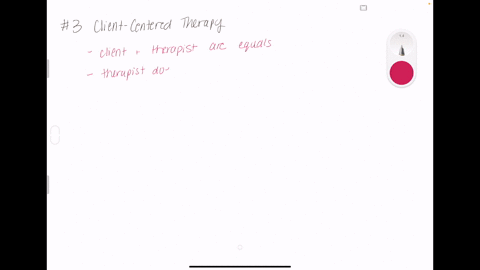 #3 Client-Centered Therapy
- client + therapist are equals
- therapist do